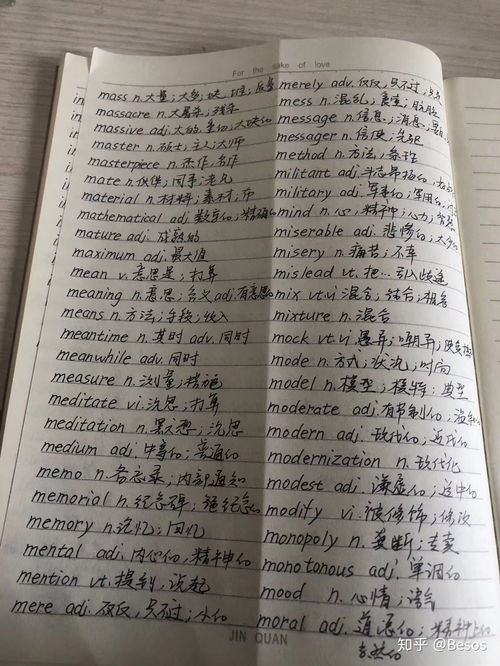 For the sake of love
mass n.大量;大块;
massacre n.大屠杀;残杀
massive adj.大的;重的;大块的
master n.硕士;主人;大师
masterpiece n.杰作;名作
mate n.伙伴;同事;老兄
material n.材料;素材;布
mathematical adj.数学的;精确的
mature adj.成熟的
maximum adj.最大值
mean v.意思是;打算
meaning n.意思;含义 adj.有意思的
means n.方法;手段;收入
meantime n.其时 adv.同时
meanwhile adv.同时
measure n.测量;措施
meditate vi.沉思;打算
meditation n.冥想;沉思
medium adj.中等的;普通的
memo n.备忘录;内部通知
memorial n.纪念碑;
memory n.记忆;回忆
mental adj.内心的,精神的
mention vt.提到,说起
mere adj.仅仅,只不过;小的
merely adv.仅仅,只不过;
mess n.混乱;食堂;
message n.信息;消息;
messager n.信使;先驱
method n.方法;条理
militant adj.斗志昂扬的;
military adj.军事的;军用的;
mind n.心,精神;心力;
miserable adj.悲惨的;
misery n.痛苦;不幸
mislead vt.把…引入歧途
mix vt.vi混合;结合;相容
mixture n.混合
mock vt.vi愚弄;嘲弄;
mode n.方式;状况;时尚
model n.模型;模特;典型
moderate adj.有节制的;
modern adj.现代的;近代的
modernization n.现代化
modest adj.谦虚的;适中的
modify vi.被修饰;修改
monopoly n.垄断;专卖
monotonous adj.单调的
mood n.心情;语气
moral adj.道德的;精神上的
JIN QUAN
知乎 @Besos